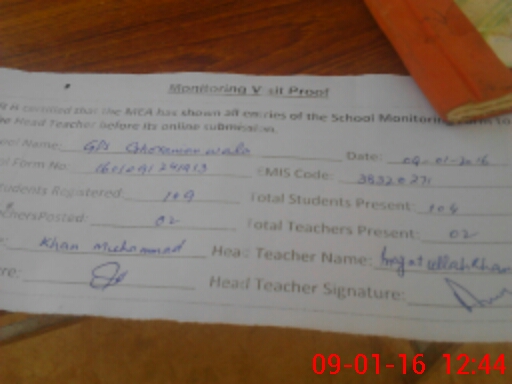 Monitoring Visit Proof
It is certified that the MEA has shown all entries of the School Monitoring Form to
the Head Teacher before its online submission.
ool Name: GPS wala Date: 09-01-2016
ol Form No: EMIS Code: 38320271
tudents Registered: 109 Total Students Present: 104
chersPosted: 02 Total Teachers Present: 02
Khan Muhammad Head Teacher Name: Inayatullah Khan
re: Head Teacher Signature:
09-01-16 12:44